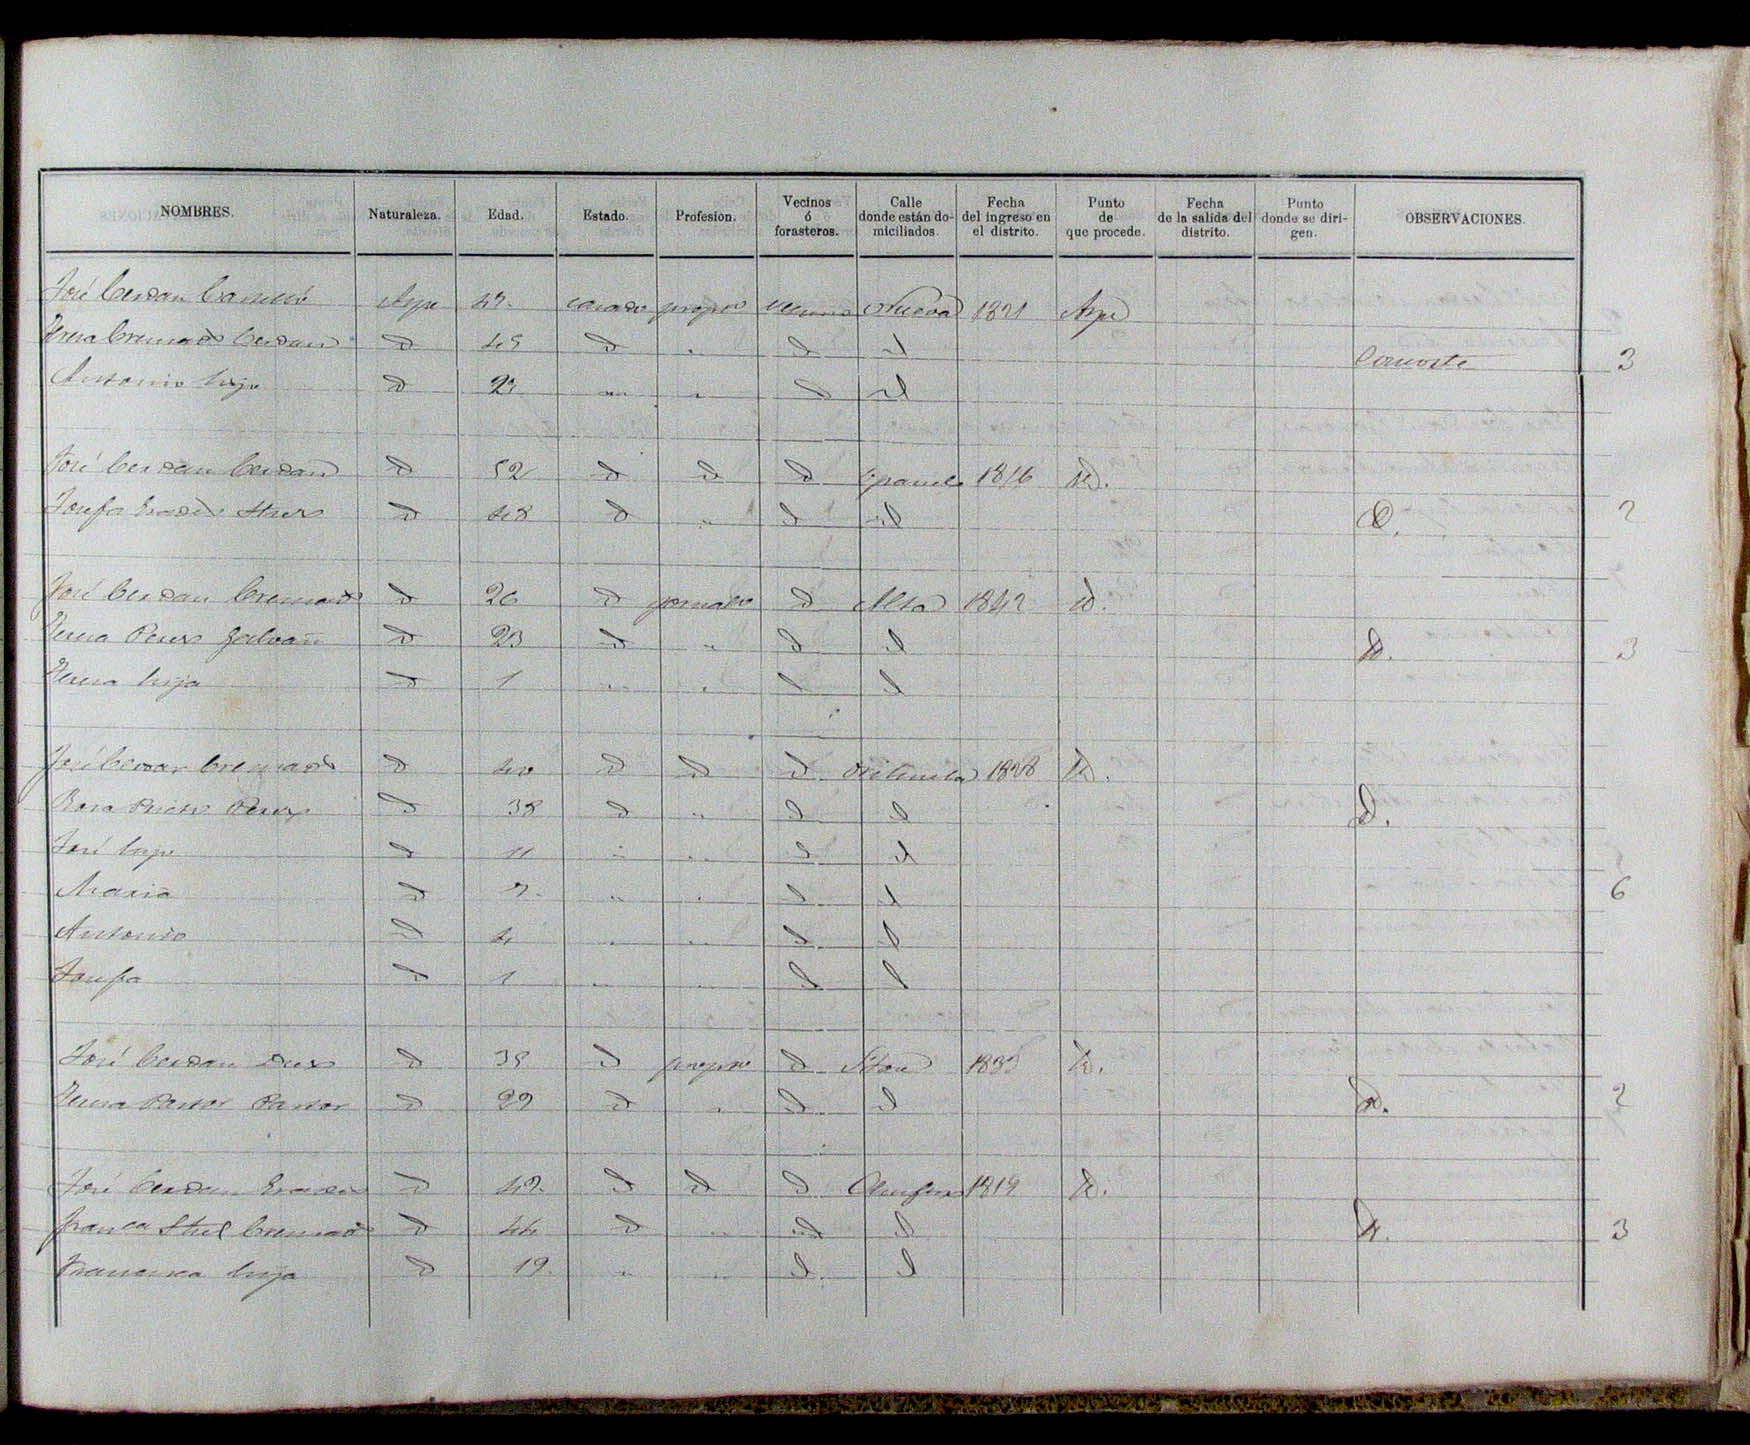 NOMBRES. Naturaleza. Edad. Estado. Profesion. Vecinos ó forasteros. Calle donde están domiciliados. Fecha del ingreso en el distrito. Punto de que procede. Fecha de la salida del distrito. Punto donde se dirigen. OBSERVACIONES.
José Cerdan Aspe casado propio vecino Nueva 1821 Aspe
Cremads Cerdan d 45 d " d d 3
Antonio hijo d " " d d
José Cerdan Cerdan d 52 d d d 1816 id.
Josefa d 48 d " d id d. 2
José Cerdan Cremads d 26 d jornalo d Alta 1842 id.
Teresa Perez Galvañ d 23 d " d d id. 3
Teresa hija d 1 " " d d
José Cerdan Cremads d 40 d d d Orihuela 1828 id.
Rosa Prieto Perez d 38 d " d d d.
José hijo d 11 " " d d
Maria d " " d d 6
Antonio d 4 " " d d
Josefa d 1 " " d d
José Cerdan d d propio d 1833 id.
Teresa Pastor Pastor d 29 d " d d id. 2
José Cerdan d 49 d d d 1819 id.
Franca Cremads d 44 d " d d id. 3
Francisca hija d 19 " " d d